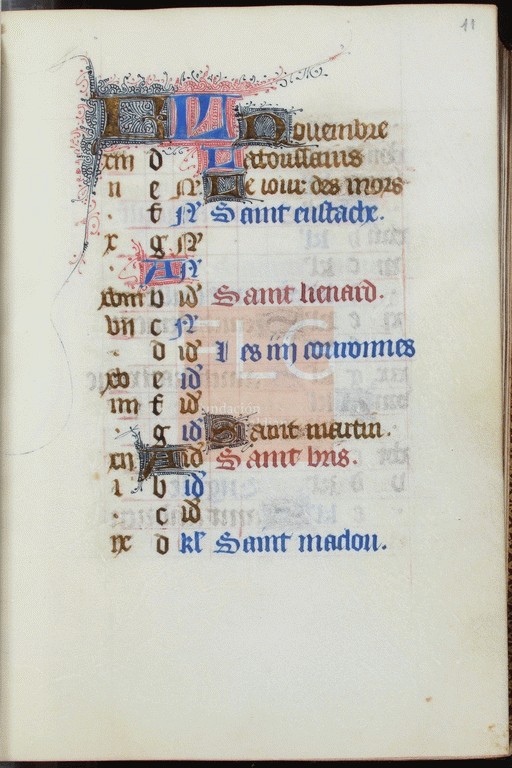 11
KL Nouembre
xiii d Latoussains
ii e N' Le iour des mors
. f N' Saint eustache.
x g N'
. A N'
xviii b id' Saint lienard.
vii c N'
. d id' Les iiij couronnes
xv e id'
iiii f id'
. g id Saint martin.
xii A id Saint bris.
i b id
. c id'
ix d kl' Saint maclou.